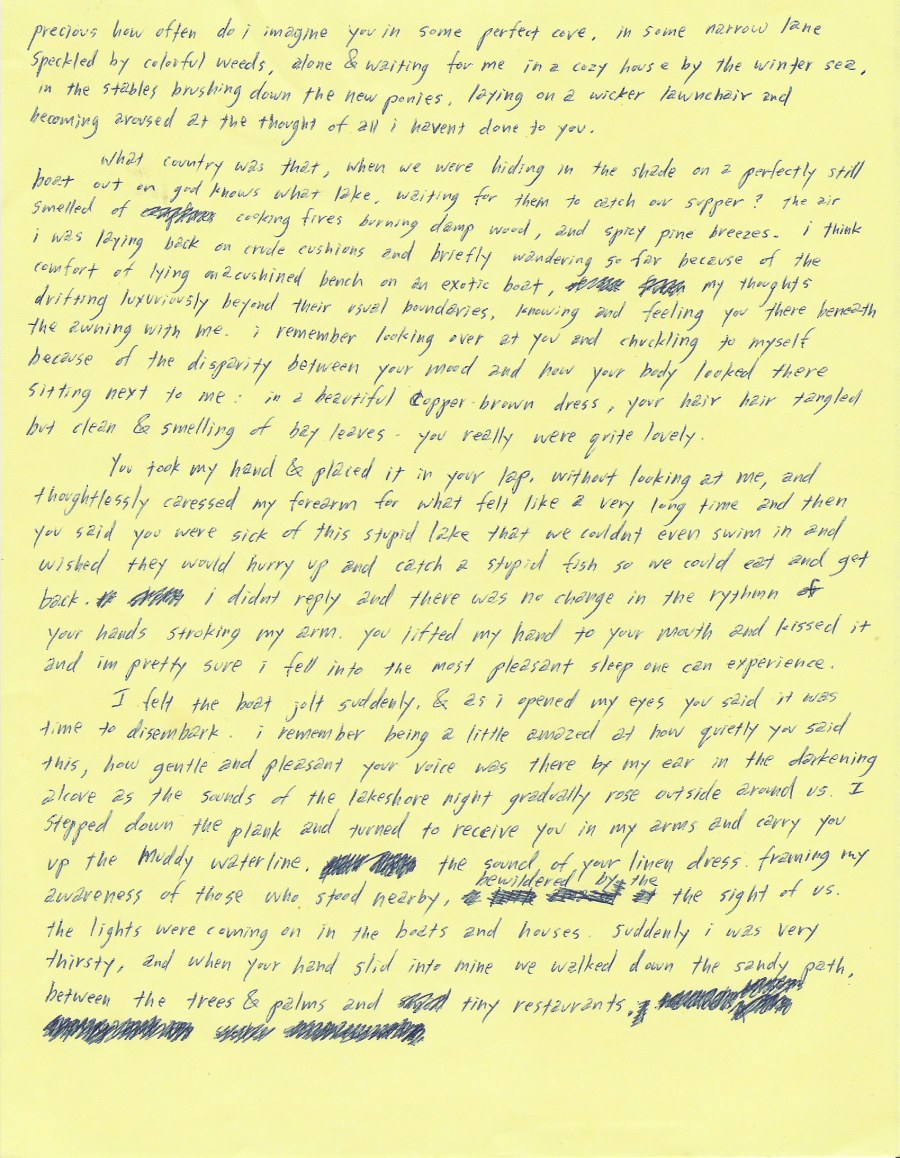 precious how often do i imagine you in some perfect cove, in some narrow lane
speckled by colorful weeds, alone & waiting for me in a cozy house by the winter sea,
in the stables brushing down the new ponies, laying on a wicker lawnchair and
becoming aroused at the thought of all i havent done to you.
what country was that, when we were hiding in the shade on a perfectly still
boat out on god knows what lake, waiting for them to catch our supper? the air
smelled of cooking fires burning damp wood, and spicy pine breezes. i think
i was laying back on crude cushions and briefly wandering so far because of the
comfort of lying on a cushined bench on an exotic boat, my thoughts
drifting luxuriously beyond their usual boundaries, knowing and feeling you there beneath
the awning with me. i remember looking over at you and chuckling to myself
because of the disparity between your mood and how your body looked there
sitting next to me: in a beautiful copper-brown dress, your hair hair tangled
but clean & smelling of bay leaves - you really were quite lovely.
You took my hand & placed it in your lap, without looking at me, and
thoughtlessly caressed my forearm for what felt like a very long time and then
you said you were sick of this stupid lake that we couldnt even swim in and
wished they would hurry up and catch a stupid fish so we could eat and get
back. i didnt reply and there was no change in the rythmn of
your hands stroking my arm. you lifted my hand to your mouth and kissed it
and im pretty sure i fell into the most pleasant sleep one can experience.
I felt the boat jolt suddenly, & as i opened my eyes you said it was
time to disembark. i remember being a little amazed at how quietly you said
this, how gentle and pleasant your voice was there by my ear in the darkening
alcove as the sounds of the lakeshore night gradually rose outside around us. I
stepped down the plank and turned to receive you in my arms and carry you
up the muddy waterline. the sound of your linen dress framing my
awareness of those who stood nearby, bewildered by the the sight of us.
the lights were coming on in the boats and houses. suddenly i was very
thirsty, and when your hand slid into mine we walked down the sandy path,
between the trees & palms and tiny restaurants.